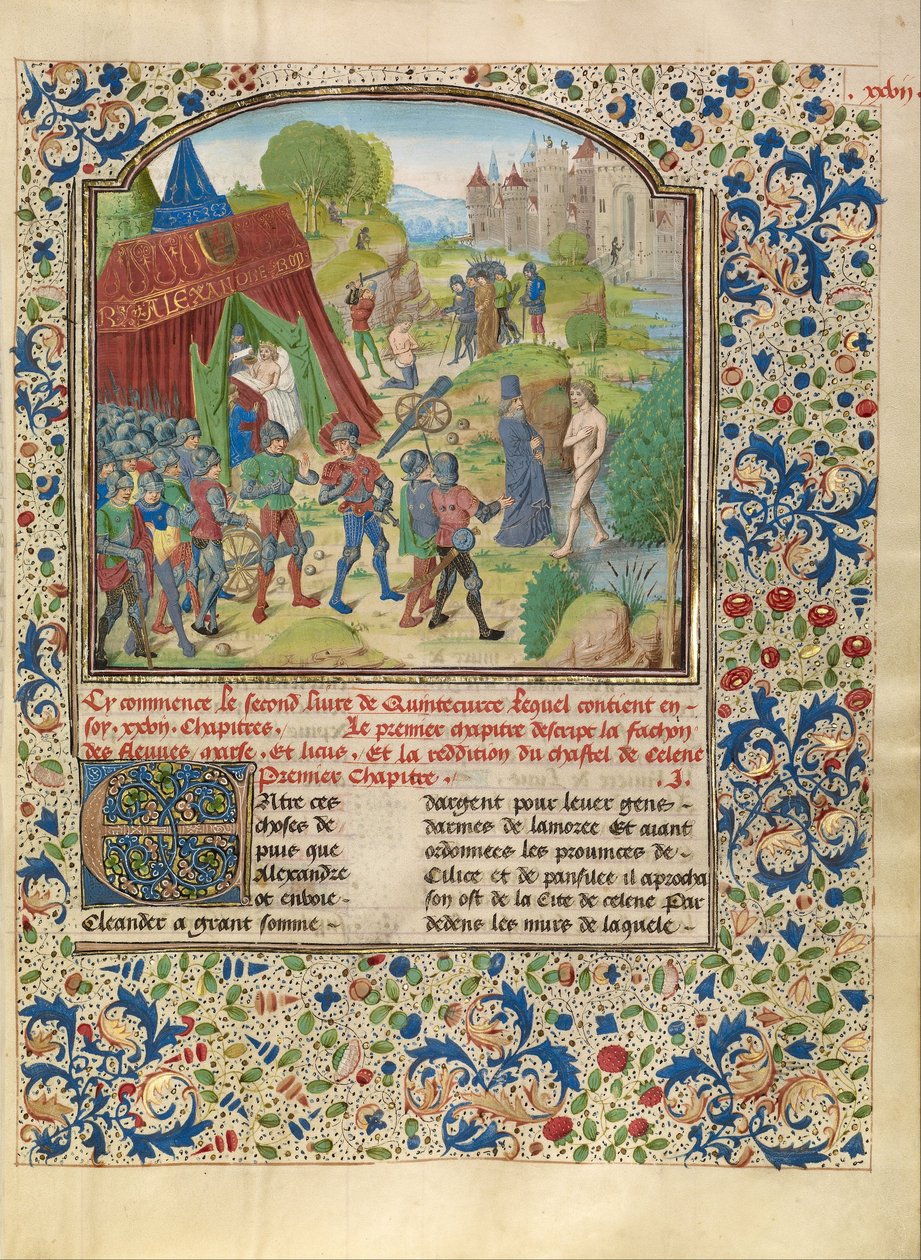 . xxbij.
REX ALEXANDRE ROY
Cy commence le second liure de Quintecurce lequel contient en-
soy .xxbij. Chapitres. Le premier chapitre descript la fachon
des fleuues marse, Et licus. Et la reddition du chastel de Celene
Premier Chapitre. .I.
Entre ces
choses de
puis que
Alexandre
ot enuoie-
Cleander a grant somme-
dargent pour leuer gens-
darmes de lamoree Et aiant
ordonnees les prouinces de-
Cilice et de pansilee il aprocha
son ost de la Cite de celene Par
dedens les murs de laquele-